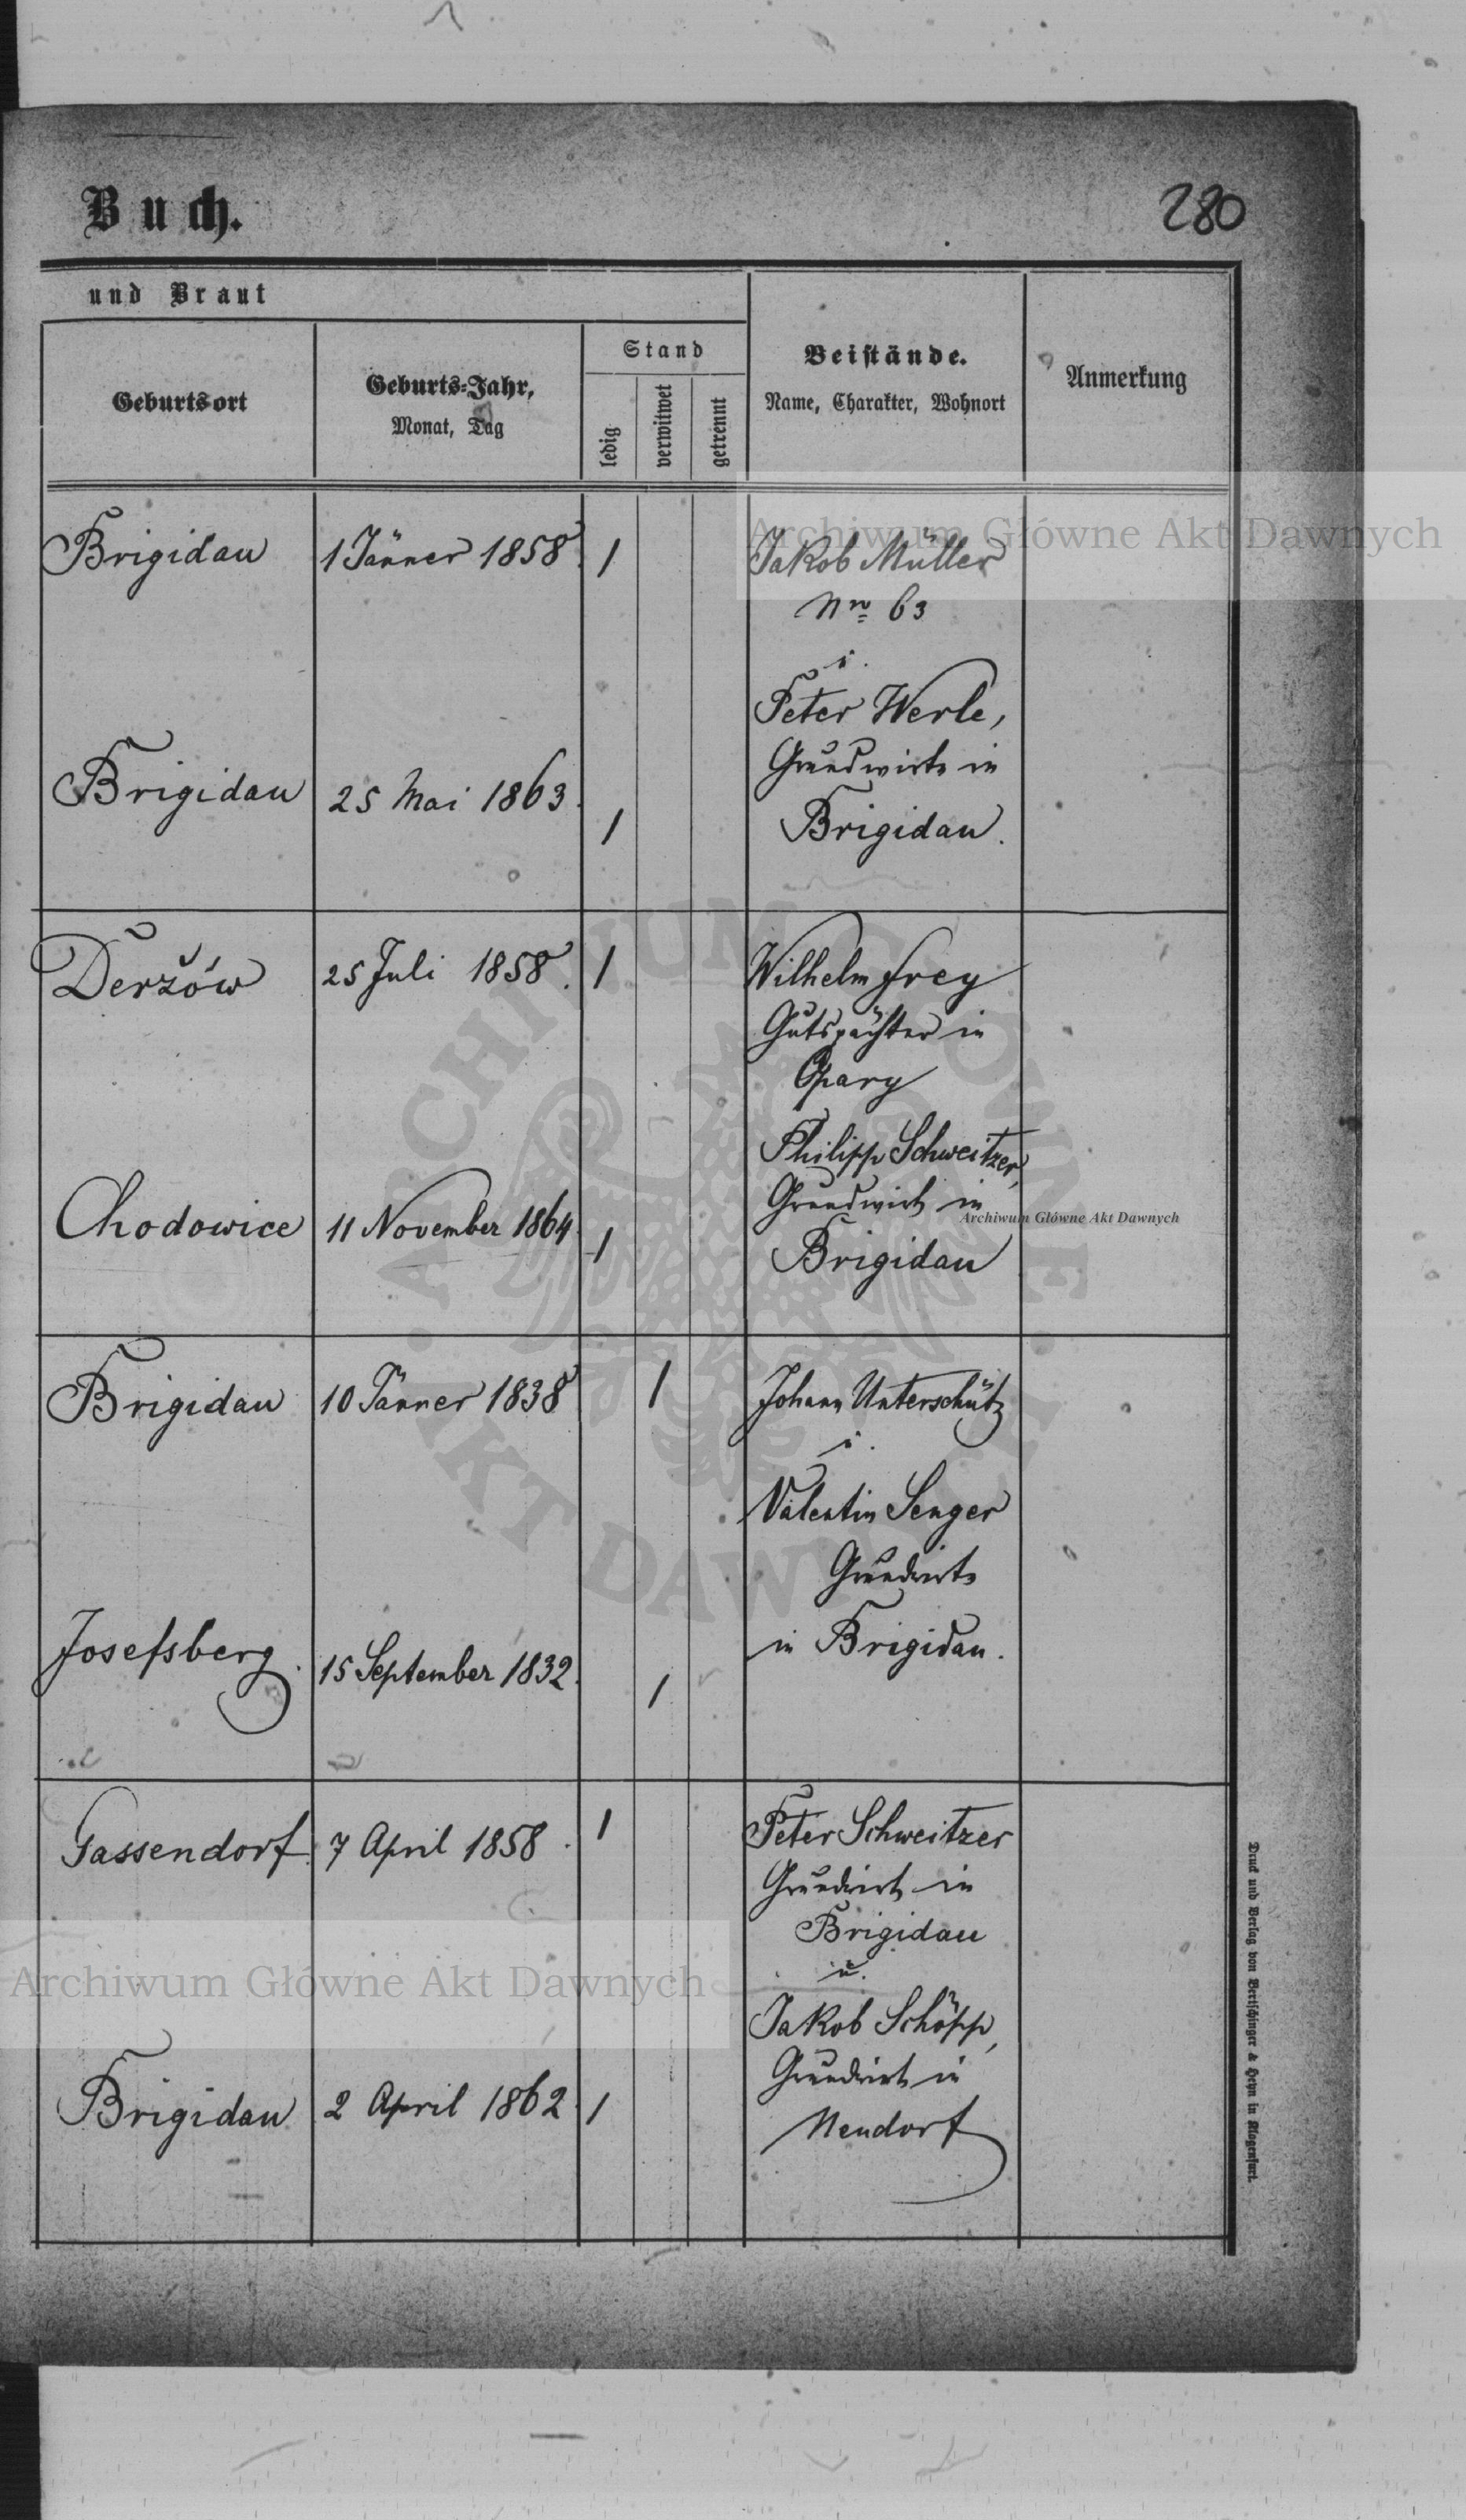 Buch.
280
und Braut
Geburtsort
Geburts-Jahr,
Monat, Tag
Stand
ledig
verwitwet
getrennt
Beistände.
Name, Charakter, Wohnort
Anmerkung
Brigidau 1 Jänner 1858 1 Jakob Müller
Nro 63
u.
Peter Werle,
Grundwirte in
Brigidau 25 Mai 1863. 1 Brigidau.
Deržów 25 Juli 1858. 1 Wilhelm Frey
Gutspächter in
Opary
Philipp Schweitzer,
Grundwirt in
Chodowice 11 November 1864. 1 Brigidau
Brigidau 10 Jänner 1838 1 Johann Unterschütz
u.
Valentin Senger
Grundwirte
in Brigidau.
Josefsberg. 15 September 1832. 1
Gassendorf. 7 April 1858. 1 Peter Schweitzer
Grundwirt in
Brigidau
u.
Jakob Schöpp,
Grundwirt in
Brigidau 2 April 1862. 1 Neudorf
Druck und Verlag von Bertschinger & Heyn in Klagenfurt.
Archiwum Główne Akt Dawnych
Archiwum Główne Akt Dawnych
Archiwum Główne Akt Dawnych